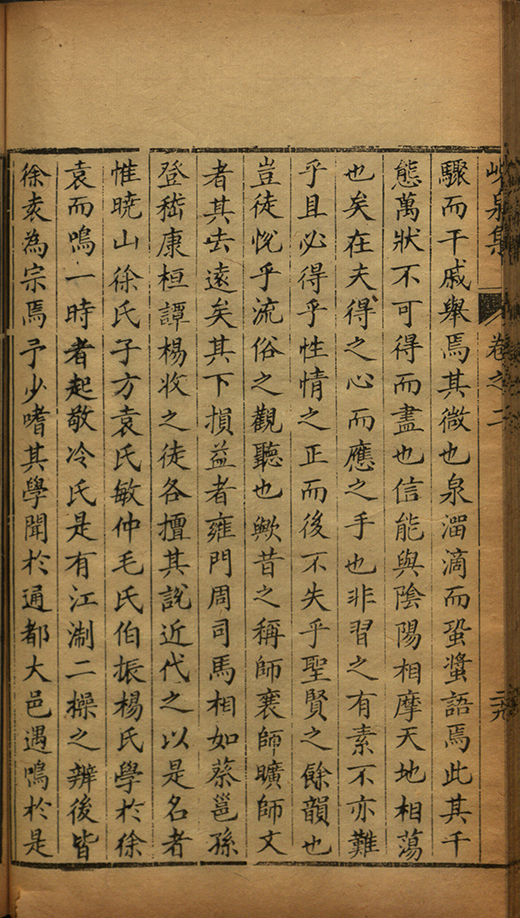 峴泉集 卷之二 二九
驟而干戚舉焉其微也泉溜滴而蛩螀語焉此其千
態萬狀不可得而盡也信能與陰陽相摩天地相蕩
也矣在夫得之心而應之手也非習之有素不亦難
乎且必得乎性情之正而後不失乎聖賢之餘韻也
豈徒悅乎流俗之觀聽也歟昔之稱師襄師曠師文
者其去遠矣其下損益者雍門周司馬相如蔡邕孫
登嵇康桓譚楊收之徒各擅其說近代之以是名者
惟曉山徐氏子方袁氏敏仲毛氏伯振楊氏學於徐
袁而鳴一時者起敬冷氏是有江淛二操之辨後皆
徐袁為宗焉予少嗜其學聞於通都大邑遇鳴於是